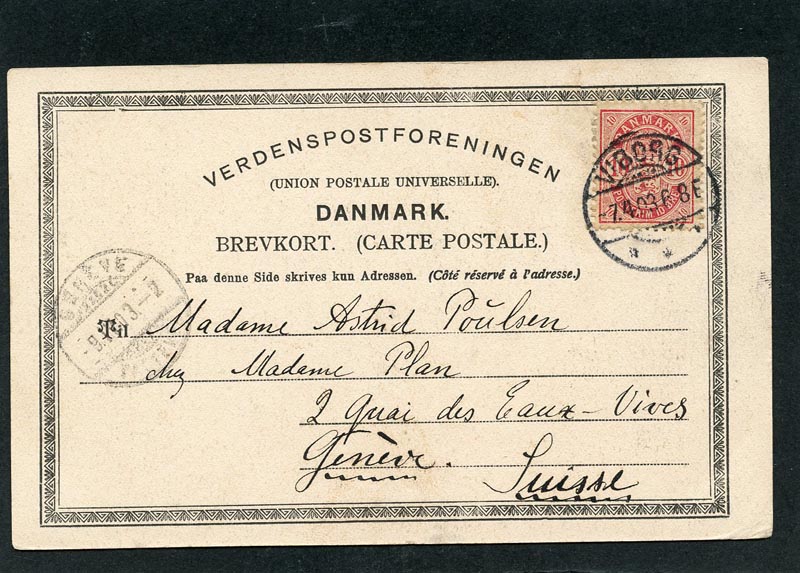 VERDENSPOSTFORENINGEN
(UNION POSTALE UNIVERSELLE).
DANMARK.
BREVKORT. (CARTE POSTALE.)
Paa denne Side skrives kun Adressen. (Côté réservé à l'adresse.)
10 DANMARK 10
VIBORG
7.4.03.6-8E
GENÈVE
Til Madame Astrid Poulsen
chez Madame Plan
2 Quai des Eaux-Vives
Genève.
Suisse